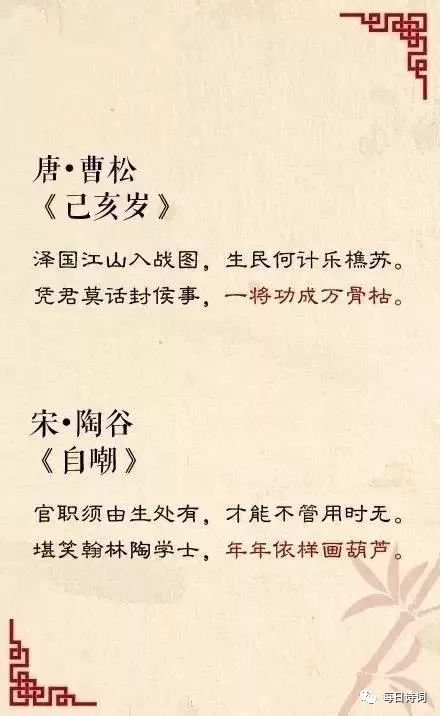 唐•曹松
《己亥岁》
泽国江山入战图，生民何计乐樵苏。
凭君莫话封侯事，一将功成万骨枯。
宋•陶谷
《自嘲》
官职须由生处有，才能不管用时无。
堪笑翰林陶学士，年年依样画葫芦。
每日诗词